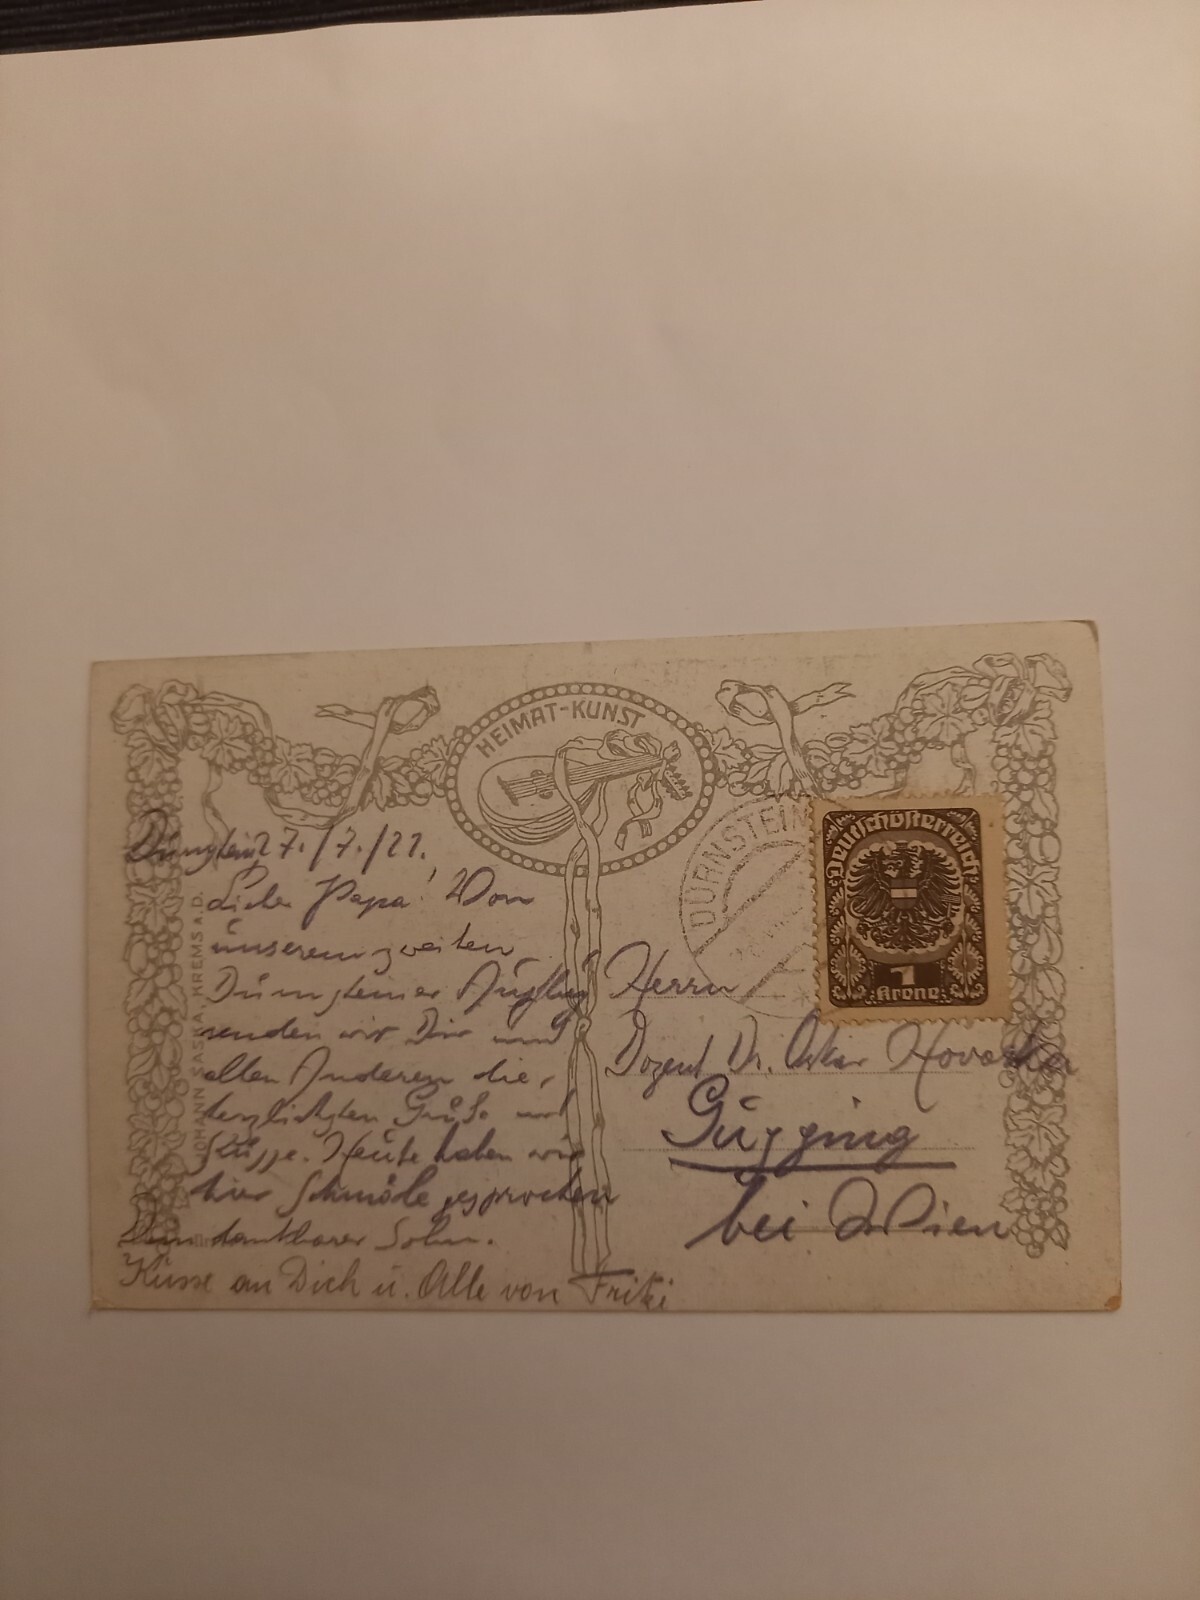 HEIMAT-KUNST
DÜRNSTEIN
Deutschösterreich
1
Krone
JOHANN SASKA, KREMS A.D.
Dürnstein 27./7./21.
Lieber Papa! Von
unserem zweiten
Dürnsteiner Ausflug
senden wir Dir und
allen Anderen die
herzlichsten Grüße und
Küsse. Heute haben wir
hier gesprochen
Dein dankbarer Sohn.
Küsse an Dich u. Alle von Fritzi
Herrn
Dozent Dr. Oskar Hovorka
Gugging
bei Wien